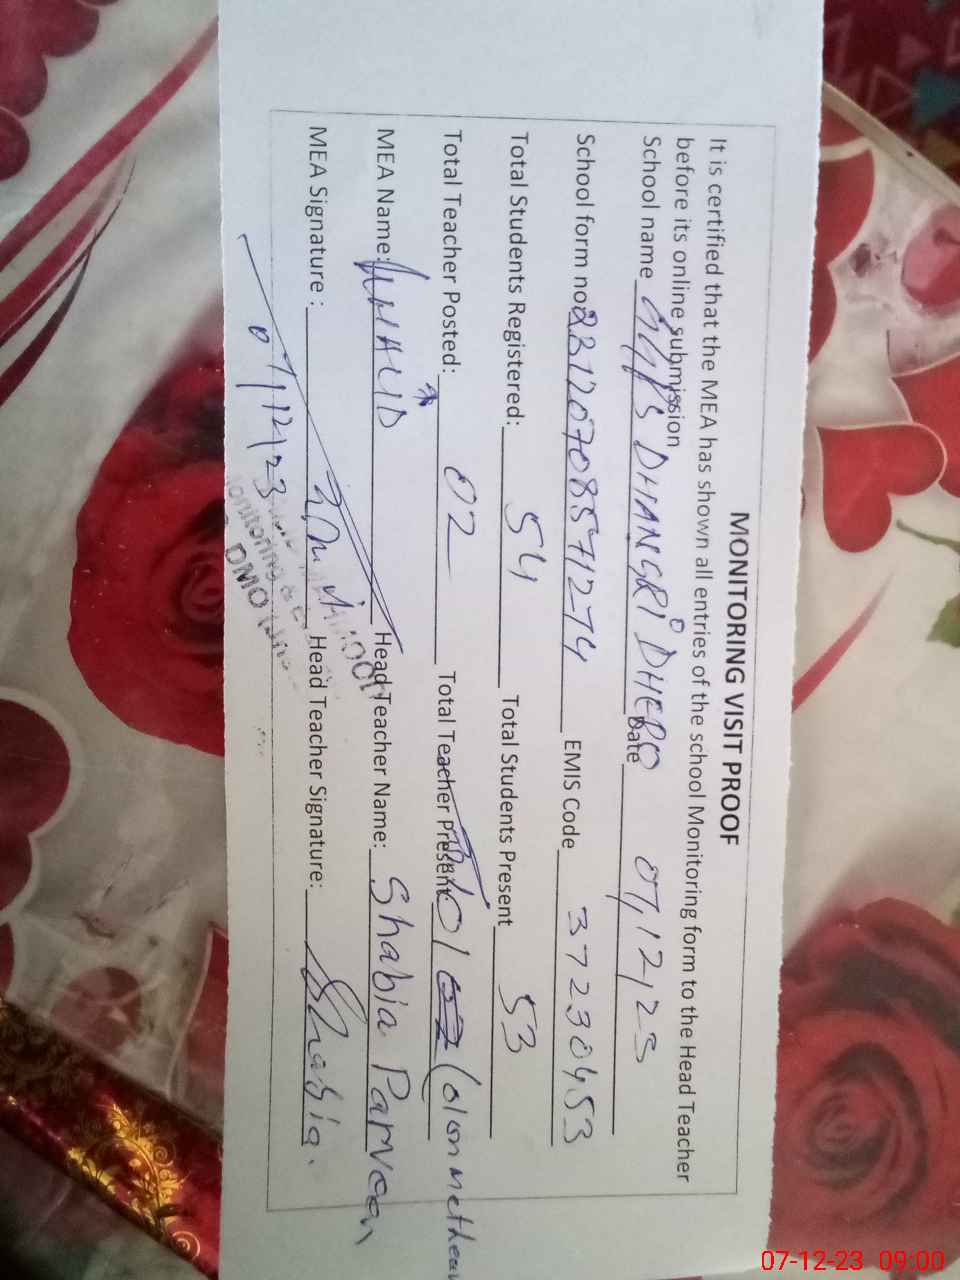 MONITORING VISIT PROOF
It is certified that the MEA has shown all entries of the school Monitoring form to the Head Teacher
before its online submission
School name GGPS DHANGRI DHERO Date 07,12,23
School form no: 23120708571274 EMIS Code 37230453
Total Students Registered: 54 Total Students Present 53
Total Teacher Posted: 02 Total Teacher Present 01 (01 on
MEA Name: KHALID Head Teacher Name: Shabia Parveen
MEA Signature : Head Teacher Signature: Shabia.
07,12,23
DMO
07-12-23 09:00